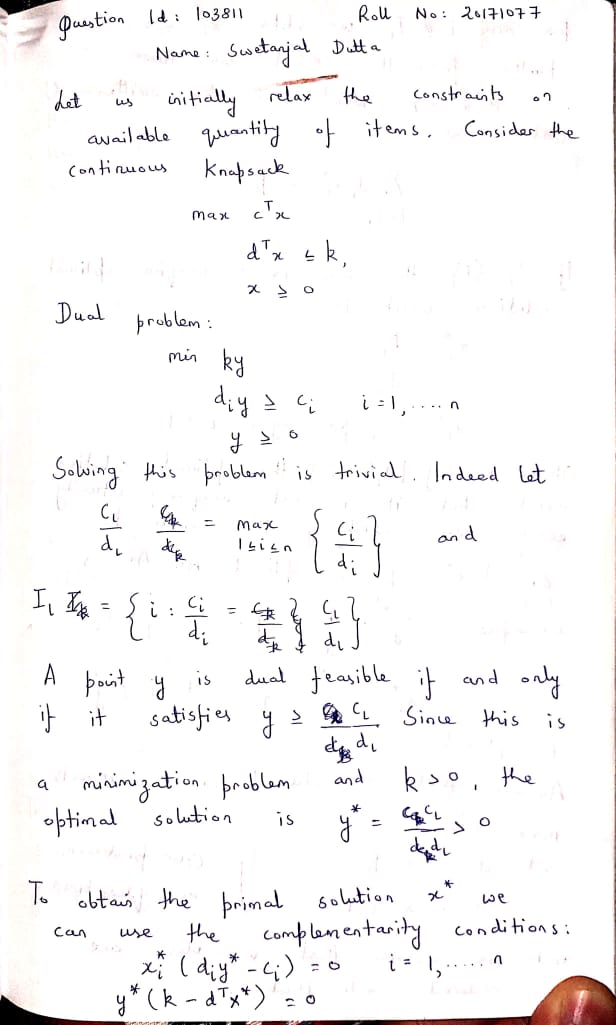 Question Id: 103811 Roll No: 20171077
Name: Swetanjal Dutta
Let us initially relax the constraints on
available quantity of items. Consider the
continuous Knapsack
max cᵀx
dᵀx ≤ k,
x ≥ 0
Dual problem:
min ky
dᵢy ≥ cᵢ i = 1, ..... n
y ≥ 0
Solving this problem is trivial. Indeed let
C_L/d_L = max 1≤i≤n { cᵢ/dᵢ } and
I_L = { i : cᵢ/dᵢ = C_L/d_L }
A point y is dual feasible if and only
if it satisfies y ≥ C_L/d_L Since this is
a minimization problem and k > 0, the
optimal solution is y* = C_L/d_L > 0
To obtain the primal solution x* we
can use the complementarity conditions:
xᵢ* (dᵢy* - cᵢ) = 0 i = 1, ..... n
y* (k - dᵀx*) = 0